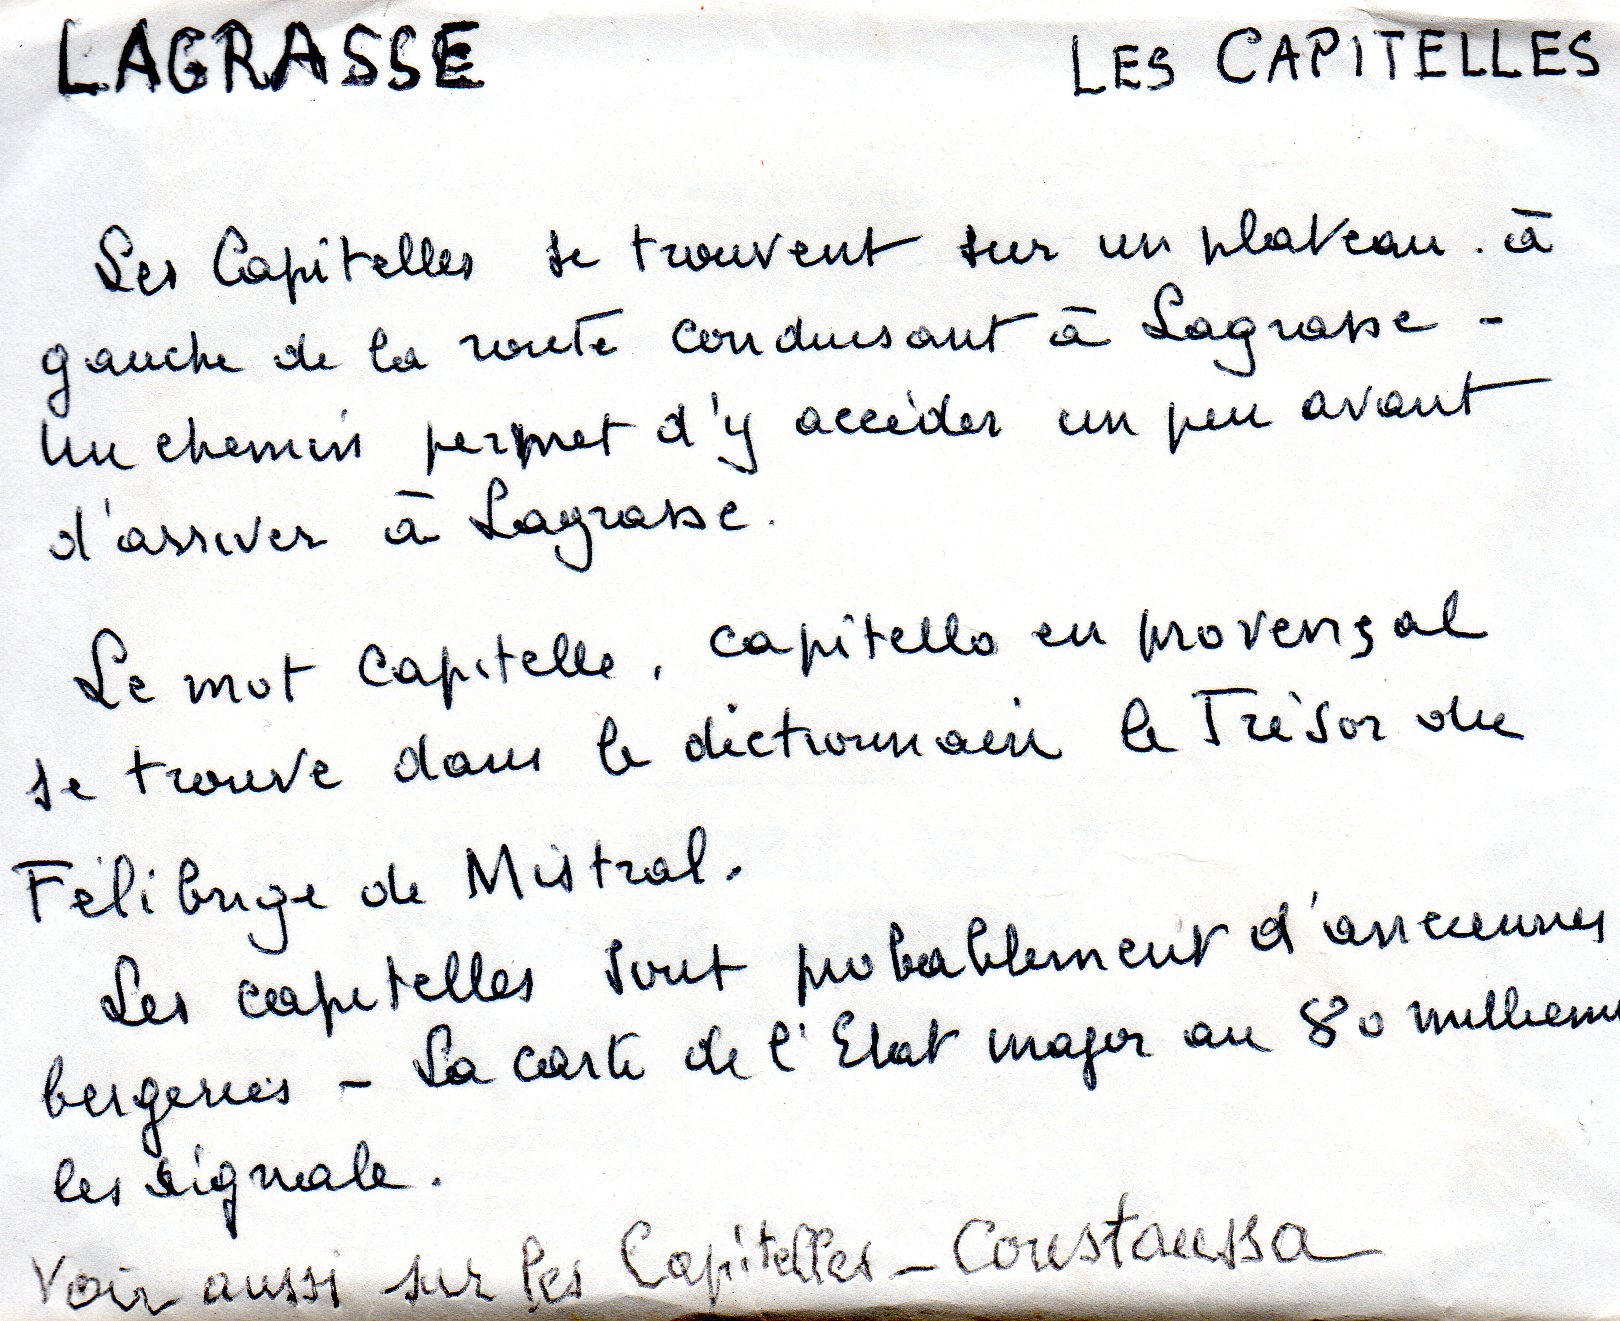 LAGRASSE LES CAPITELLES
Les Capitelles se trouvent sur un plateau. à
gauche de la route conduisant à Lagrasse -
Un chemin permet d'y accéder un peu avant
d'arriver à Lagrasse.
Le mot Capitelle, capitello en provençal
se trouve dans le dictionnaire le Trésor du
Félibrige de Mistral.
Les capitelles sont probablement d'anciennes
bergeries - La carte de l'Etat major au 80 millième
les signale.
Voir aussi sur les Capitelles - Coustaussa